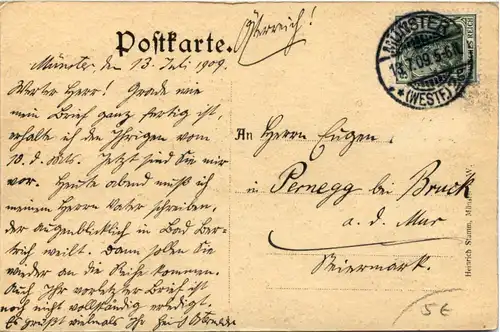 Österreich!
Postkarte.
MÜNSTER
13.7.09. 5-6 N.
*(WESTF.)
Münster, den 13. Juli 1909.
Werter Herr! Grade wie
mein Brief ganz fertig ist,
erhalte ich den Ihrigen vom
10. d. Mts. Jetzt sind Sie mir
vor. Heute abend muß ich
meinem Herrn Vater schreiben,
der augenblicklich in Bad Ber-
trich weilt. Dann sollen Sie
wieder an die Reihe kommen.
Auch Ihr vorletzter Brief ist
noch nicht vollständig erledigt.
Es grüßt vielmals Ihr
An Herrn Eugen,
in Pernegg bei Bruck
a. d. Mur
Steiermark.
Heinrich Stamm, Münster i. W.
5€